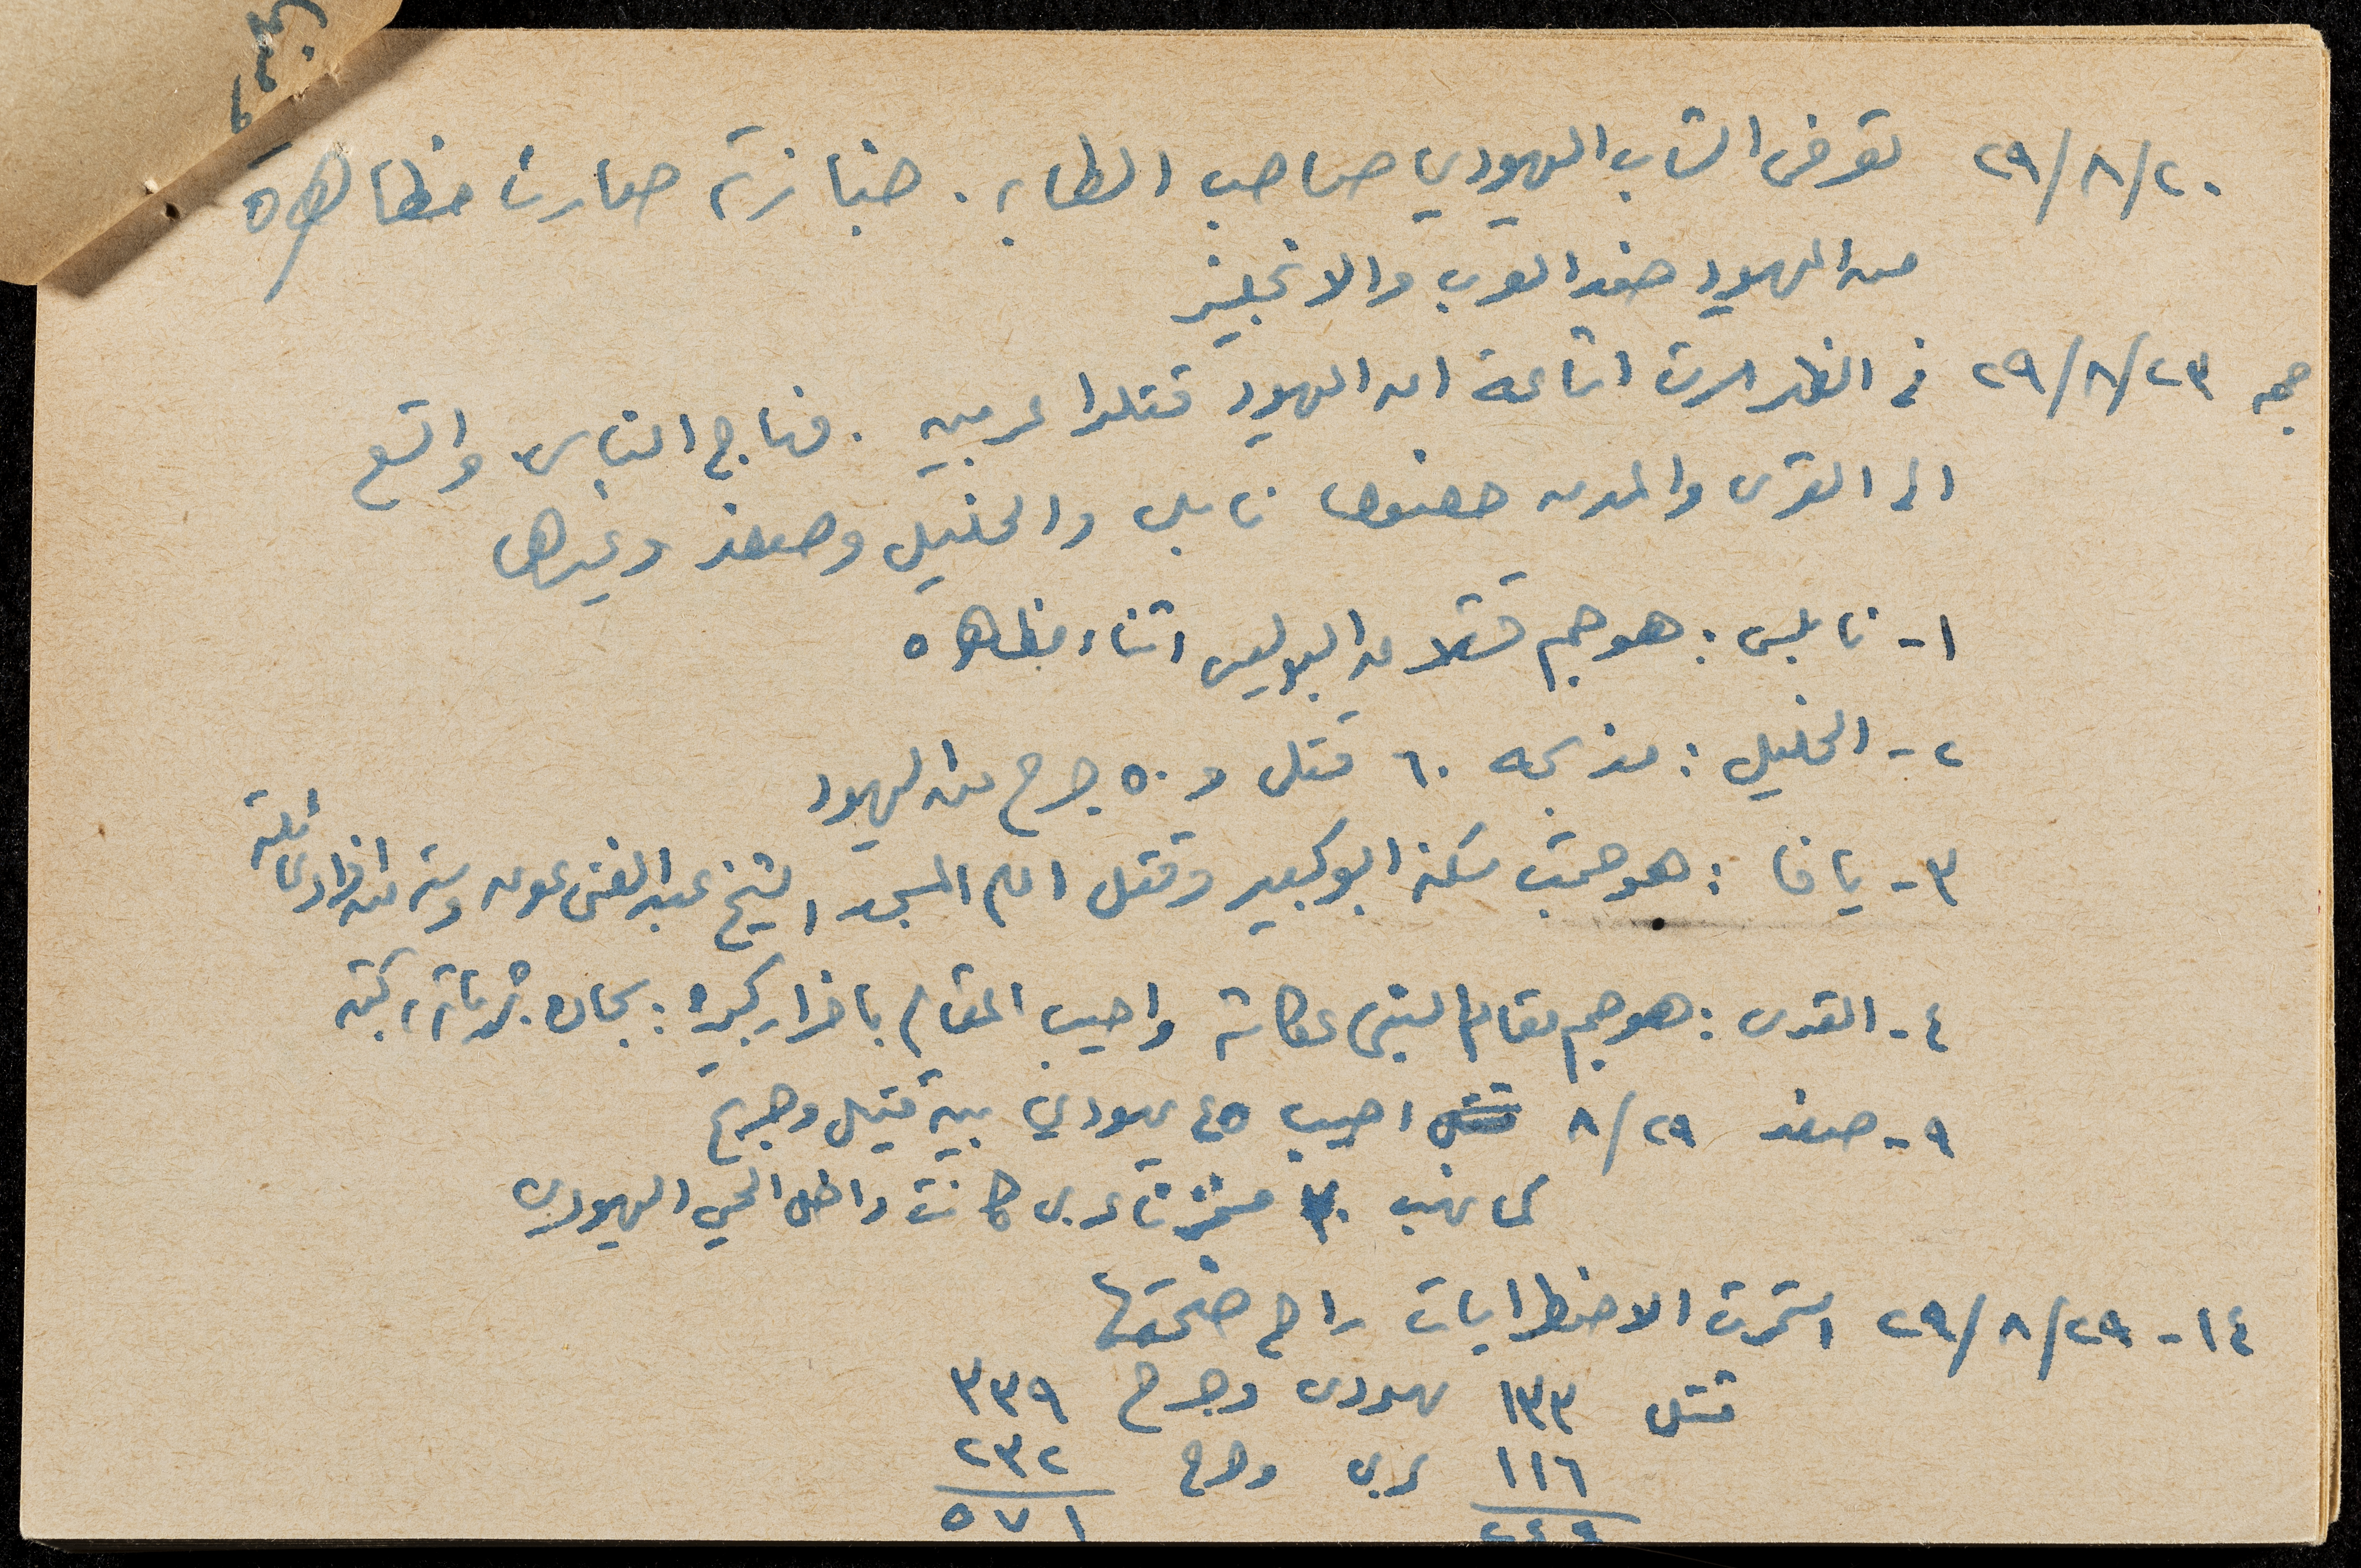 ٢٩/٨/٢٠ توفى الشاب اليهودي صاحب الطابه . جنازته صارت مظاهره
من اليهود ضد العرب والانجليز
جمعه ٢٩/٨/٢٣ في الظهر سرت اشاعة ان اليهود قتلوا عربيين . فهاج الناس واتسع
الى القرى والمدن خصوصا نابلس والخليل وصفد وغيرها
١- نابلس : هوجم قشلاق البوليس اثناء مظاهره
٢- الخليل : مذبحه ٦٠ قتل و ٥٠ جرح من اليهود
٣- يافا : هوجمت سكنة ابو كبير وقتل امام المسجد الشيخ عبد الغنى عون وسته من افراد عائلته
٤- القدس : هوجم مقام النبي عكاشة واصيب المقام باضرار كبيره :
٩- صفد ٨/٢٩ قتل اصيب ٤٥ يهودي بين قتيل وجريح
كما نهب مخزنا عربى كانت داخل الحي اليهودي
١٤- ٢٩/٨/٢٩ استمرت الاضطرابات
قتل ١٣٣ يهودى وجرح ٣٣٩
١١٦ عربى وجرح ٢٣٢
٢٤٩ ٥٧١